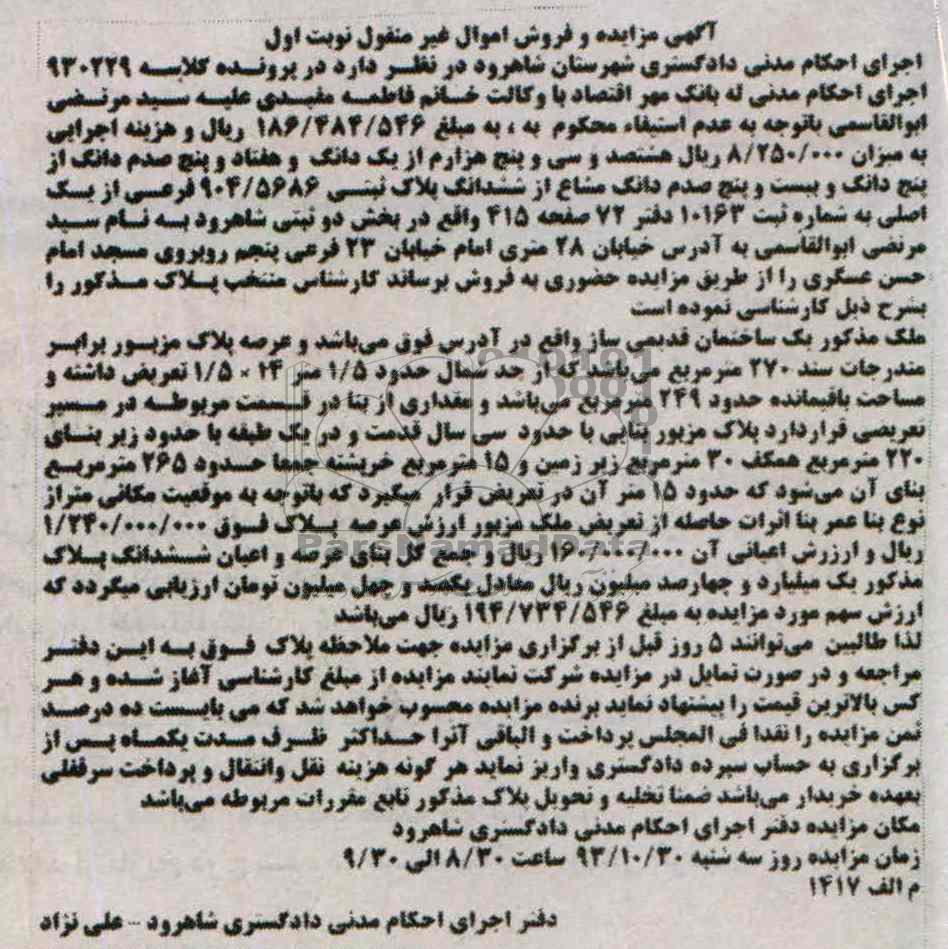 آگهی مزایده و فروش اموال غیر منقول نوبت اول
اجرای احکام مدنی دادگستری شهرستان شاهرود در نظر دارد در پرونده کلاسه ۹۳۰۲۲۹
اجرای احکام مدنی له بانک مهر اقتصاد با وکالت خانم فاطمه مفیدی علیه سید مرتضی
ابوالقاسمی باتوجه به عدم استیفاء محکوم به ، به مبلغ ۱۸۶/۴۸۴/۵۴۶ ریال و هزینه اجرایی
به میزان ۸/۲۵۰/۰۰۰ ریال هشتصد و سی و پنج هزارم از یک دانگ و هفتاد و پنج صدم دانگ از
پنج دانگ و بیست و پنج صدم دانگ مشاع از ششدانگ پلاک ثبتی ۹۰۴/۵۶۸۶ فرعی از یک
اصلی به شماره ثبت ۱۰۱۶۳ دفتر ۷۲ صفحه ۴۱۵ واقع در بخش دو ثبتی شاهرود به نام سید
مرتضی ابوالقاسمی به آدرس خیابان ۲۸ متری امام خیابان ۲۳ فرعی پنجم روبروی مسجد امام
حسن عسگری را از طریق مزایده حضوری به فروش برساند کارشناس منتخب پلاک مذکور را
بشرح ذیل کارشناسی نموده است
ملک مذکور یک ساختمان قدیمی ساز واقع در آدرس فوق می‌باشد و عرصه پلاک مزبور برابر
مندرجات سند ۲۷۰ مترمربع می‌باشد که از حد شمال حدود ۱/۵ متر ۱۴ × ۱/۵ تعریض داشته و
مساحت باقیمانده حدود ۲۴۹ مترمربع می‌باشد و مقداری از بنا در قسمت مربوطه در مسیر
تعریضی قراردارد پلاک مزبور بنایی با حدود سی سال قدمت و در یک طبقه با حدود زیر بنای
۲۲۰ مترمربع همکف ۳۰ مترمربع زیر زمین و ۱۵ مترمربع خرپشته جمعا حدود ۲۶۵ مترمربع
بنای آن می‌شود که حدود ۱۵ متر آن در تعریض قرار میگیرد که باتوجه به موقعیت مکانی متراژ
نوع بنا عمر بنا اثرات حاصله از تعریض ملک مزبور ارزش عرصه پلاک فوق ۱/۲۴۰/۰۰۰/۰۰۰
ریال و ارزرش اعیانی آن ۱۶۰/۰۰۰/۰۰۰ ریال و جمع کل بنای عرصه و اعیان ششدانگ پلاک
مذکور یک میلیارد و چهارصد میلیون ریال معادل یکصد و چهل میلیون تومان ارزیابی میگردد که
ارزش سهم مورد مزایده به مبلغ ۱۹۴/۷۳۴/۵۴۶ ریال می‌باشد
لذا طالبین می‌توانند ۵ روز قبل از برگزاری مزایده جهت ملاحظه پلاک فوق به این دفتر
مراجعه و در صورت تمایل در مزایده شرکت نمایند مزایده از مبلغ کارشناسی آغاز شده و هر
کس بالاترین قیمت را پیشنهاد نماید برنده مزایده محسوب خواهد شد که می بایست ده درصد
ثمن مزایده را نقدا فی المجلس پرداخت و الباقی آنرا حداکثر ظرف مدت یکماه پس از
برگزاری به حساب سپرده دادگستری واریز نماید هر گونه هزینه نقل وانتقال و پرداخت سرقفلی
بعهده خریدار می‌باشد ضمنا تخلیه و تحویل پلاک مذکور تابع مقررات مربوطه می‌باشد
مکان مزایده دفتر اجرای احکام مدنی دادگستری شاهرود
زمان مزایده روز سه شنبه ۹۳/۱۰/۳۰ ساعت ۸/۳۰ الی ۹/۳۰
م الف ۱۴۱۷
دفتر اجرای احکام مدنی دادگستری شاهرود - علی نژاد
ParsNamadData